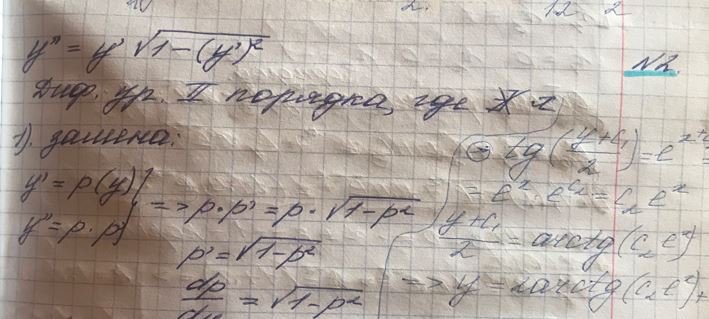 12 2
y'' = y' √1-(y')²
N2.
Диф. ур. II порядка, где X x
1). замена:
y' = p(y)
y'' = p·p'
=> p·p' = p·√1-p²
p' = √1-p²
dp/dy = √1-p²
=> tg((y+c₁)/2) = e^x+c₂ =
= e^x · e^c₂ = c₂ e^x
(y+c₁)/2 = arctg(c₂ e^x)
=> y = 2arctg(c₂ e^x) +